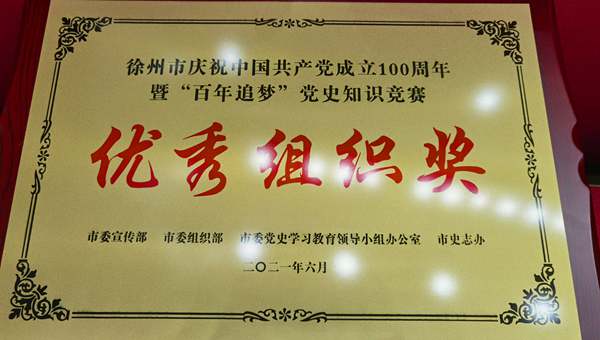 徐州市庆祝中国共产党成立100周年
暨“百年追梦”党史知识竞赛
优秀组织奖
市委宣传部 市委组织部 市委党史学习教育领导小组办公室 市史志办
二〇二一年六月